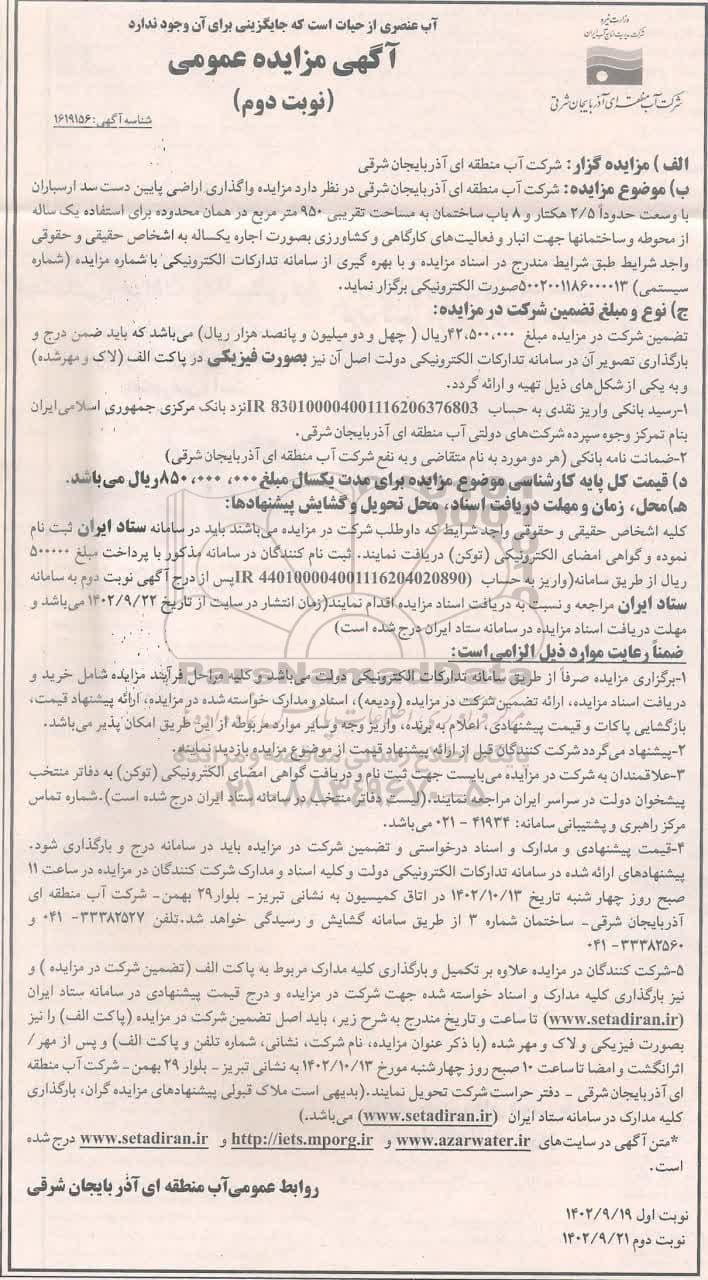 آب عنصری از حیات است که جایگزینی برای آن وجود ندارد
وزارت نیرو
شرکت مدیریت منابع آب ایران
شرکت آب منطقه ای آذربایجان شرقی
آگهی مزایده عمومی
(نوبت دوم)
شناسه آگهی: ۱۶۱۹۱۵۶
الف ) مزایده گزار: شرکت آب منطقه ای آذربایجان شرقی
ب) موضوع مزایده: شرکت آب منطقه ای آذربایجان شرقی در نظر دارد مزایده واگذاری اراضی پایین دست سد ارسباران
با وسعت حدوداً ۲/۵ هکتار و ۸ باب ساختمان به مساحت تقریبی ۹۵۰ متر مربع در همان محدوده برای استفاده یک ساله
از محوطه وساختمانها جهت انبار و فعالیت‌های کارگاهی و کشاورزی بصورت اجاره یکساله به اشخاص حقیقی و حقوقی
واجد شرایط طبق شرایط مندرج در اسناد مزایده و با بهره گیری از سامانه تدارکات الکترونیکی با شماره مزایده (شماره
سیستمی) ۵۰۰۲۰۰۱۱۸۶۰۰۰۰۱۳صورت الکترونیکی برگزار نماید.
ج) نوع و مبلغ تضمین شرکت در مزایده:
تضمین شرکت در مزایده مبلغ ۴۲,۵۰۰,۰۰۰ریال ( چهل و دو میلیون و پانصد هزار ریال) می‌باشد که باید ضمن درج و
بارگذاری تصویر آن در سامانه تدارکات الکترونیکی دولت اصل آن نیز بصورت فیزیکی در پاکت الف (لاک و مهرشده)
و به یکی از شکل‌های ذیل تهیه و ارائه گردد.
۱-رسید بانکی واریز نقدی به حساب IR 830100004001116206376803نزد بانک مرکزی جمهوری اسلامی ایران
بنام تمرکز وجوه سپرده شرکت‌های دولتی آب منطقه ای آذربایجان شرقی.
۲-ضمانت نامه بانکی (هر دو مورد به نام متقاضی و به نفع شرکت آب منطقه ای آذربایجان شرقی)
د) قیمت کل پایه کارشناسی موضوع مزایده برای مدت یکسال مبلغ۸۵۰،۰۰۰،۰۰۰ریال می‌باشد.
هـ)محل، زمان و مهلت دریافت اسناد، محل تحویل و گشایش پیشنهادها:
کلیه اشخاص حقیقی و حقوقی واجد شرایط که داوطلب شرکت در مزایده می‌باشند باید در سامانه ستاد ایران ثبت نام
نموده و گواهی امضای الکترونیکی (توکن) دریافت نمایند. ثبت نام کنندگان در سامانه مذکور با پرداخت مبلغ ۵۰۰۰۰۰
ریال از طریق سامانه(واریز به حساب IR 440100004001116204020890)پس از درج آگهی نوبت دوم به سامانه
ستاد ایران مراجعه و نسبت به دریافت اسناد مزایده اقدام نمایند(زمان انتشار در سایت از تاریخ ۱۴۰۲/۹/۲۲ می‌باشد و
مهلت دریافت اسناد مزایده در سامانه ستاد ایران درج شده است)
ضمناً رعایت موارد ذیل الزامی است:
۱-برگزاری مزایده صرفاً از طریق سامانه تدارکات الکترونیکی دولت می‌باشد و کلیه مراحل فرآیند مزایده شامل خرید و
دریافت اسناد مزایده، ارائه تضمین شرکت در مزایده (ودیعه)، اسناد و مدارک خواسته شده در مزایده، ارائه پیشنهاد قیمت،
بازگشایی پاکات و قیمت پیشنهادی، اعلام به برنده، واریز وجه و سایر موارد مربوطه از این طریق امکان پذیر می‌باشد.
۲-پیشنهاد می‌گردد شرکت کنندگان قبل از ارائه پیشنهاد قیمت از موضوع مزایده بازدید نمایند.
۳-علاقمندان به شرکت در مزایده می‌بایست جهت ثبت نام و دریافت گواهی امضای الکترونیکی (توکن) به دفاتر منتخب
پیشخوان دولت در سراسر ایران مراجعه نمایند.(لیست دفاتر منتخب در سامانه ستاد ایران درج شده است).شماره تماس
مرکز راهبری و پشتیبانی سامانه: ۴۱۹۳۴ - ۰۲۱ می‌باشد.
۴-قیمت پیشنهادی و مدارک و اسناد درخواستی و تضمین شرکت در مزایده باید در سامانه درج و بارگذاری شود.
پیشنهادهای ارائه شده در سامانه تدارکات الکترونیکی دولت و کلیه اسناد و مدارک شرکت کنندگان در مزایده در ساعت ۱۱
صبح روز چهار شنبه تاریخ ۱۴۰۲/۱۰/۱۳ در اتاق کمیسیون به نشانی تبریز- بلوار۲۹ بهمن- شرکت آب منطقه ای
آذربایجان شرقی- ساختمان شماره ۳ از طریق سامانه گشایش و رسیدگی خواهد شد.تلفن ۳۳۳۸۲۵۲۷- ۰۴۱ و
۳۳۳۸۲۵۶۰- ۰۴۱
۵-شرکت کنندگان در مزایده علاوه بر تکمیل و بارگذاری کلیه مدارک مربوط به پاکت الف (تضمین شرکت در مزایده ) و
نیز بارگذاری کلیه مدارک و اسناد خواسته شده جهت شرکت در مزایده و درج قیمت پیشنهادی در سامانه ستاد ایران
(www.setadiran.ir) تا ساعت و تاریخ مندرج به شرح زیر، باید اصل تضمین شرکت در مزایده (پاکت الف) را نیز
بصورت فیزیکی و لاک و مهر شده (با ذکر عنوان مزایده، نام شرکت، نشانی، شماره تلفن و پاکت الف) و پس از مهر /
اثرانگشت و امضا تا ساعت ۱۰ صبح روز چهارشنبه مورخ ۱۴۰۲/۱۰/۱۳ به نشانی تبریز - بلوار ۲۹ بهمن- شرکت آب منطقه
ای آذربایجان شرقی - دفتر حراست شرکت تحویل نمایند.(بدیهی است ملاک قبولی پیشنهادهای مزایده گران، بارگذاری
کلیه مدارک در سامانه ستاد ایران (www.setadiran.ir) می‌باشد.)
*متن آگهی در سایت‌های www.azarwater.ir و http://iets.mporg.ir و www.setadiran.ir درج شده
است.
روابط عمومی آب منطقه ای آذربایجان شرقی
نوبت اول ۱۴۰۲/۹/۱۹
نوبت دوم ۱۴۰۲/۹/۲۱
ParsNamadData
پایگاه اطلاع رسانی مناقصه و مزایده
۰۲۱-۸۸۳۴۹۶۷۰-۵